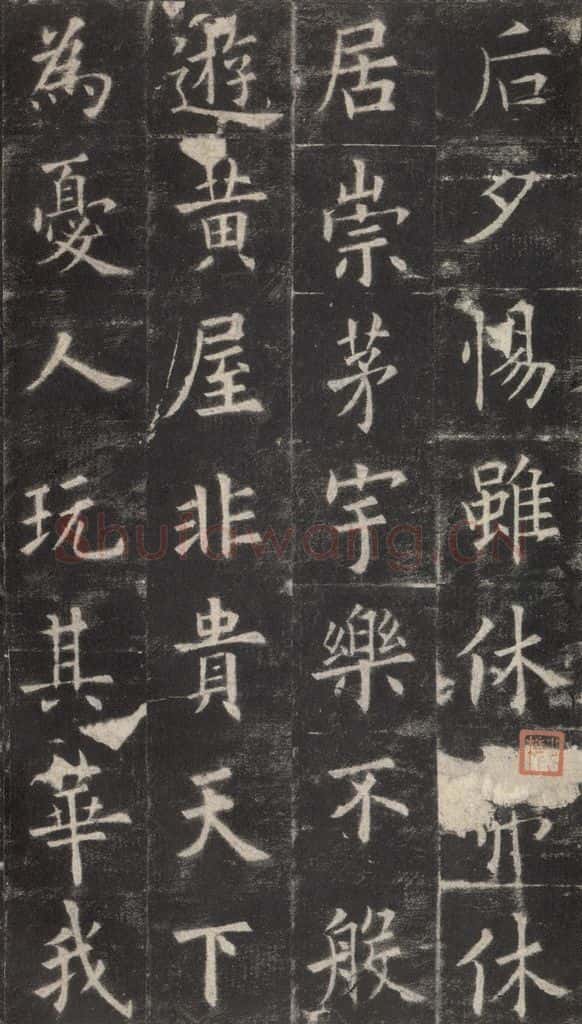 后夕惕雖休休
居崇茅宇樂不般
遊黃屋非貴天下
為憂人玩其華我
Shufawang.CN